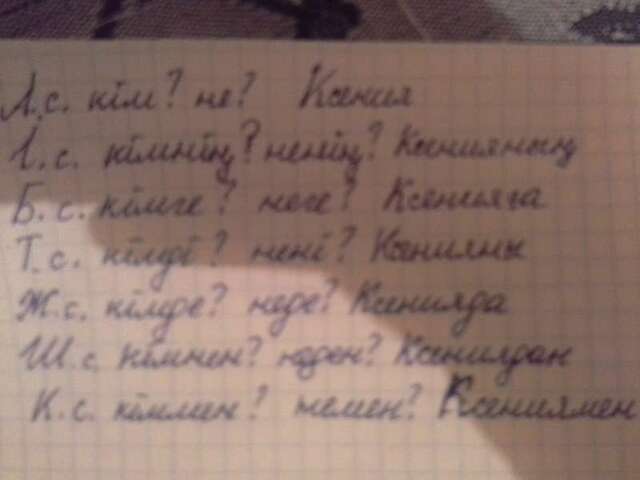 А.с. кім? не? Ксения
І.с. кімнің? ненің? Ксенияның
Б.с. кімге? неге? Ксенияға
Т.с. кімді? нені? Ксенияны
Ж.с. кімде? неде? Ксенияда
Ш.с. кімнен? неден? Ксениядан
К.с. кіммен? немен? Ксениямен